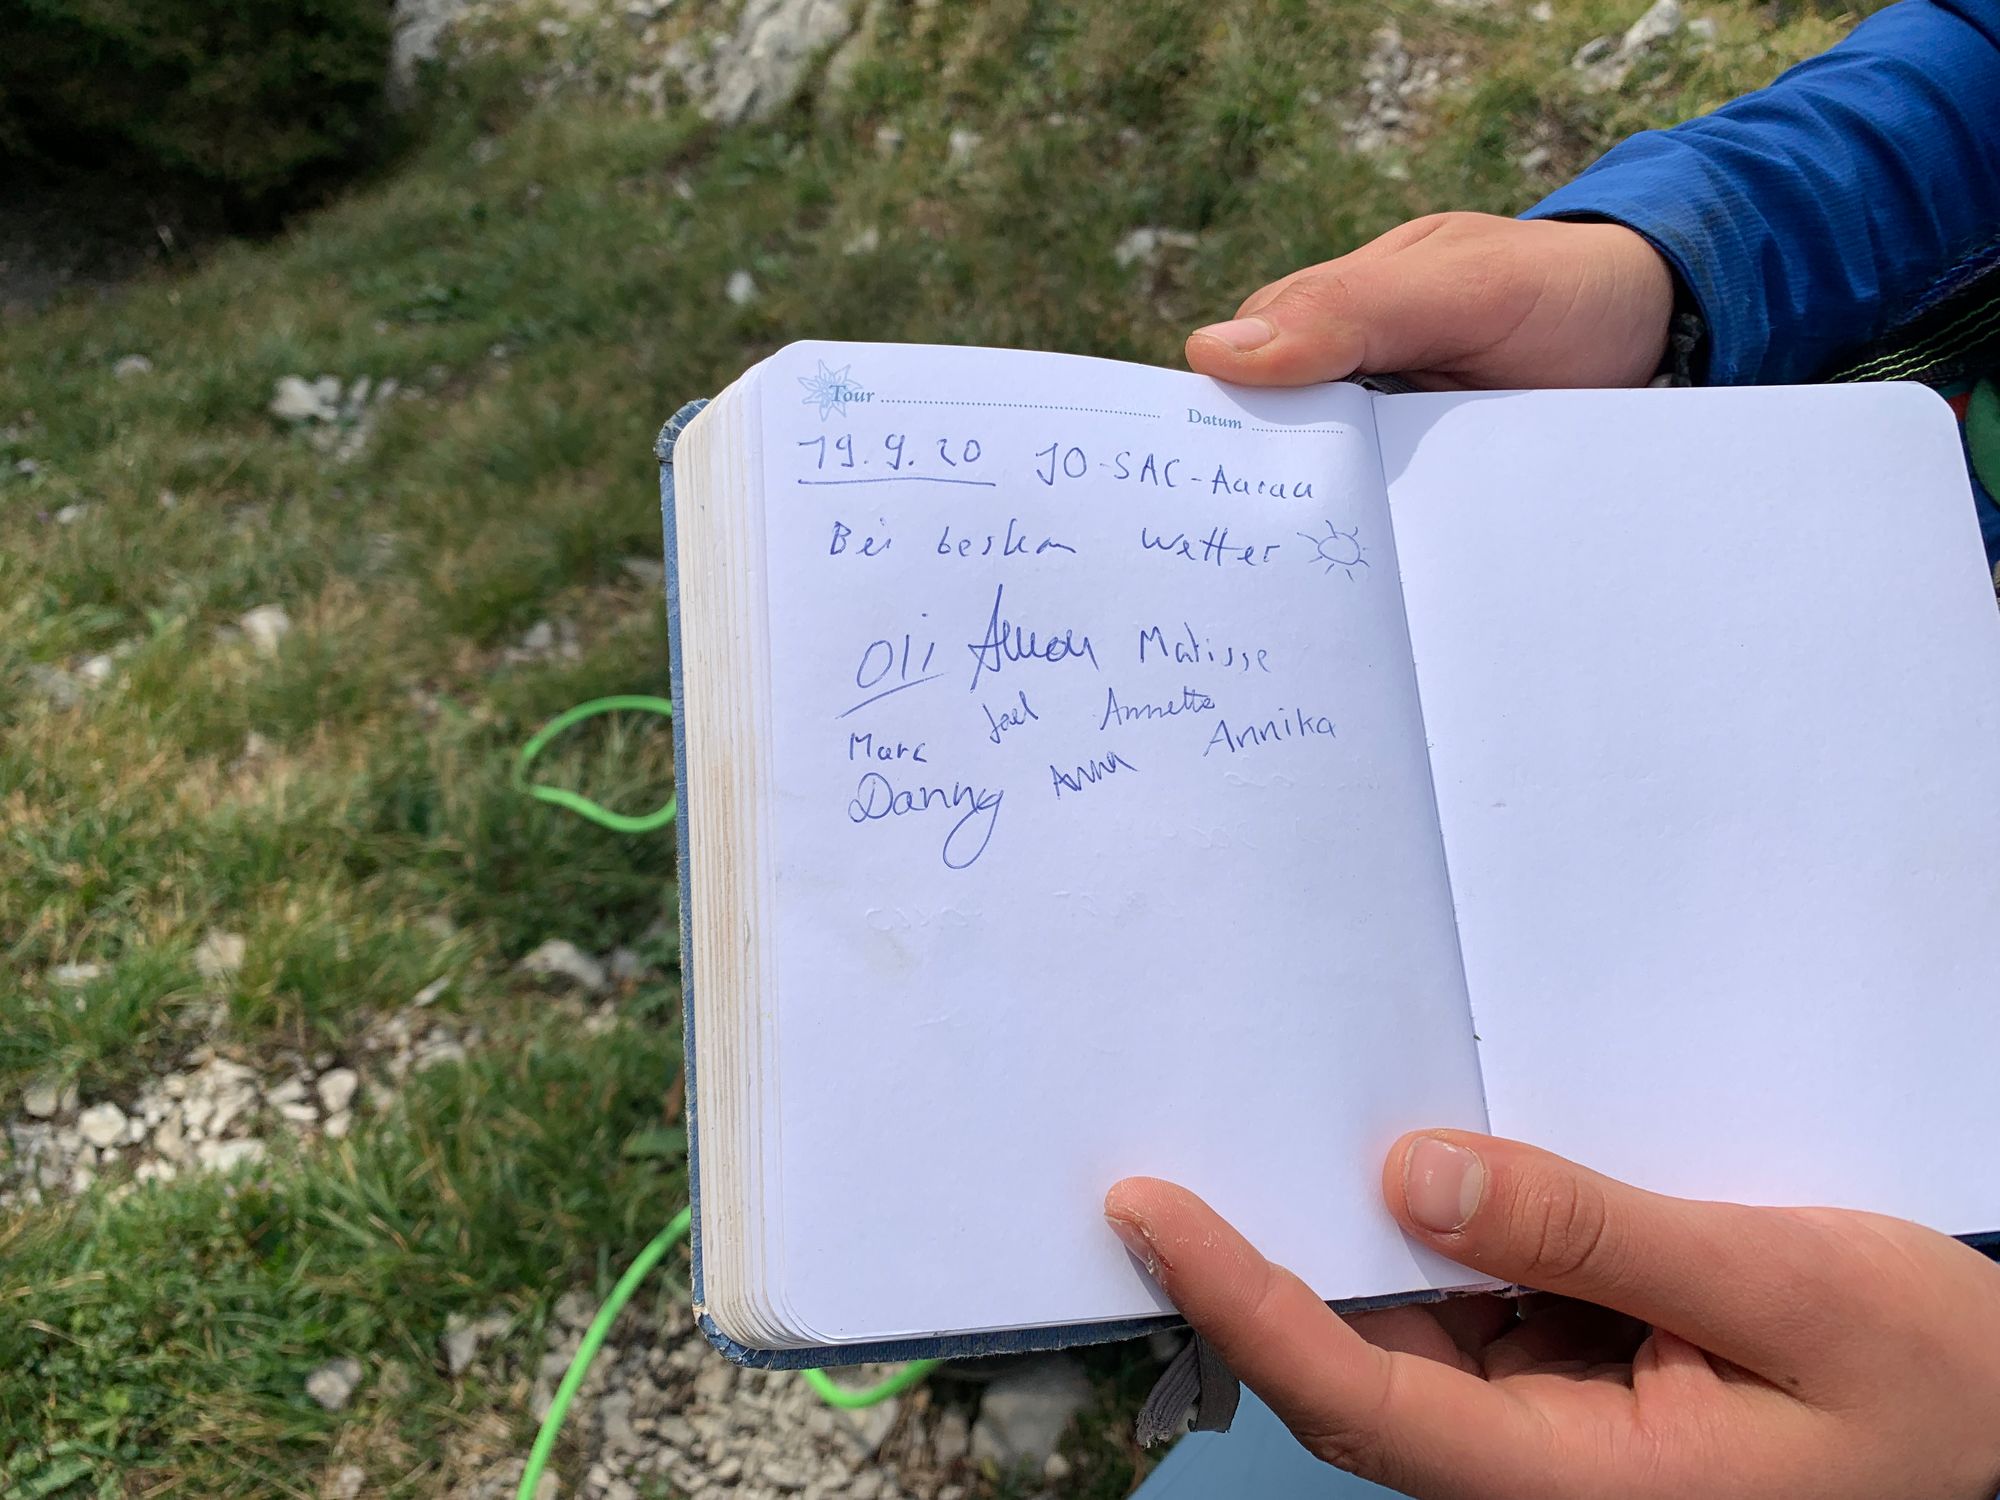 Tour ........ Datum ........
19.9.20 JO-SAC-Aarau
Bei bestem Wetter
Oli Matisse
Marc Joel Annette
Danny Anna Annika